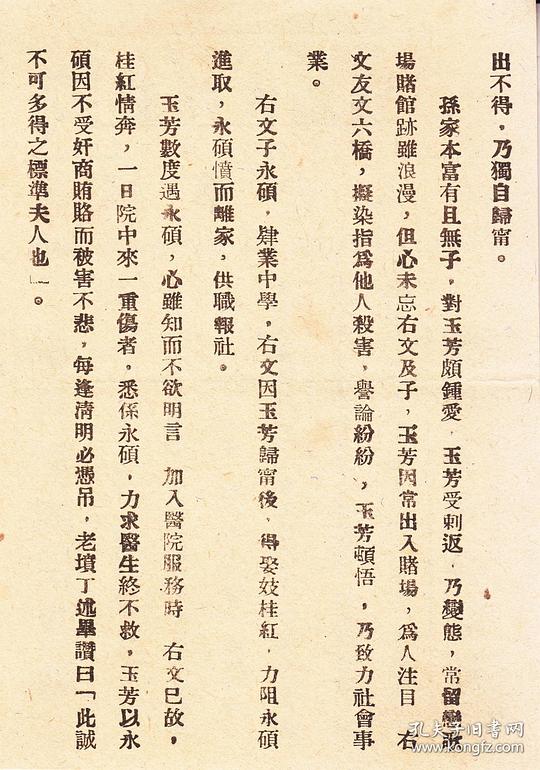 出不得，乃獨自歸甯。
孫家本富有且無子，對玉芳頗鍾愛，玉芳受刺返，乃變態，常留戀於
場賭館跡雖浪漫，但必未忘右文及子，玉芳因常出入賭場，爲人注目 右
文友文六橋，擬染指爲他人殺害，譽論紛紛，玉芳頓悟，乃致力社會事
業。
右文子永碩，肄業中學，右文因玉芳歸甯後，得娶妓桂紅，力阻永碩
進取，永碩憤而離家，供職報社。
玉芳數度遇永碩，心雖知而不欲明言 加入醫院服務時 右文已故，
桂紅情奔，一日院中來一重傷者，悉係永碩，力求醫生終不救，玉芳以永
碩因不受奸商賄賂而被害不悲，每逢清明必憑吊，老墳丁述畢讚曰「此誠
不可多得之標準夫人也」。
孔夫子旧书网
www.kongfz.com